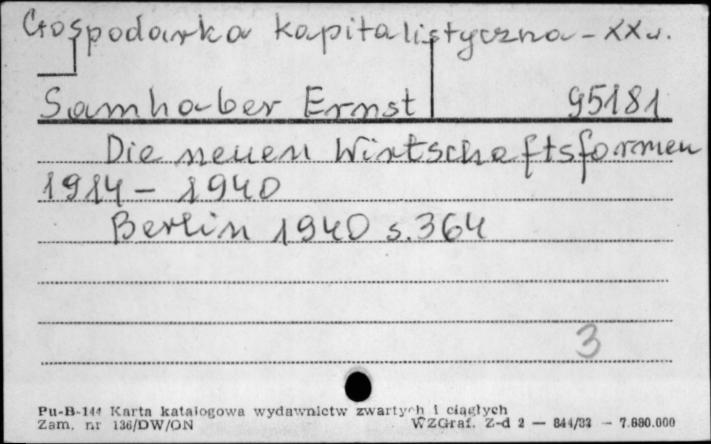 Gospodarka kapitalistyczna - XX w.
Samhaber Ernst 95181
Die neuen Wirtschaftsformen
1914 - 1940
Berlin 1940 s. 364
3
Pu-B-144 Karta katalogowa wydawnictw zwartych i ciągłych
Zam. nr 136/DW/ON WZGraf. Z-d 2 — 844/82 — 7.680.000